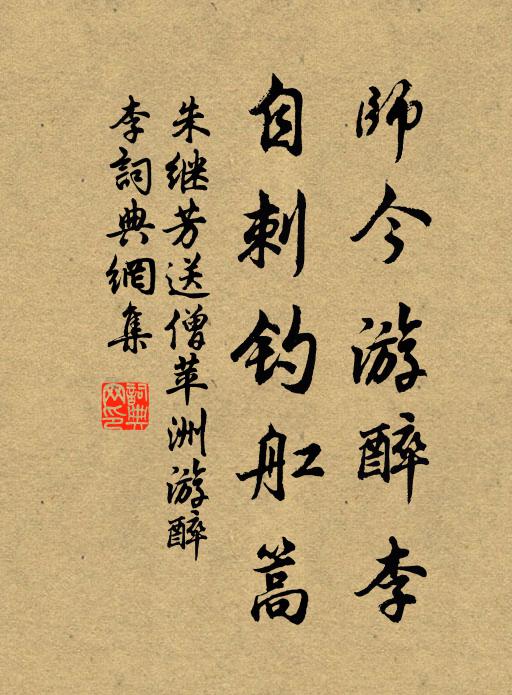 師今游醉李
自刺釣舡篙
朱继芳送僧苹洲游醉
李詞典網集
詞典網印